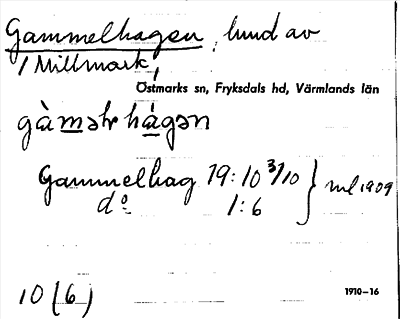 Gammelhagen, hund av
/ Millmark,
Östmarks sn, Fryksdals hd, Värmlands län
gàməlr hàgən
Gammelhag 19:10 3/10 } ml 1909
do 1:6
10 (6)
1910–16